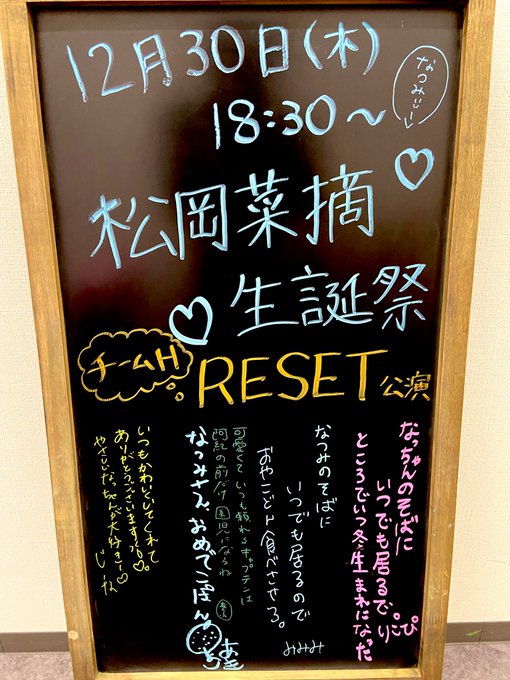 12月30日(木)
18:30〜
なつみぃー
松岡菜摘
生誕祭
チームH
RESET公演
なっちゃんのそばに
いつでも居るで。りこぴ
ところでいつ冬生まれになった
なつみのそばに
いつでも居るので
おやこどん食べさせろ。
みみみ
可愛くていつも頼れるキャプテンは
阿紀の前だけ園児になるね
なつみさん、おめでごぼん
あき
いつもかわいいしてくれて
ありがとうございます
やさしいなっちゃんが大好きです♡